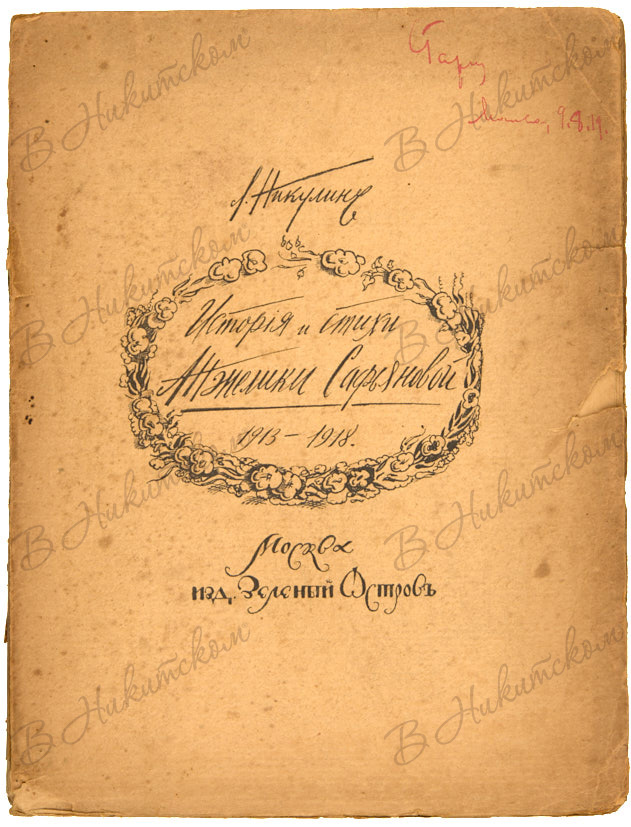 Л. Никулинъ
Исторія и стихи
Анжелики Сафьяновой
1913 – 1918.
Москва
изд. Зеленый Островъ
В Никитском
В Никитском
В Никитском
В Никитском
В Никитском
В Никитском
В Никитском
В Никитском